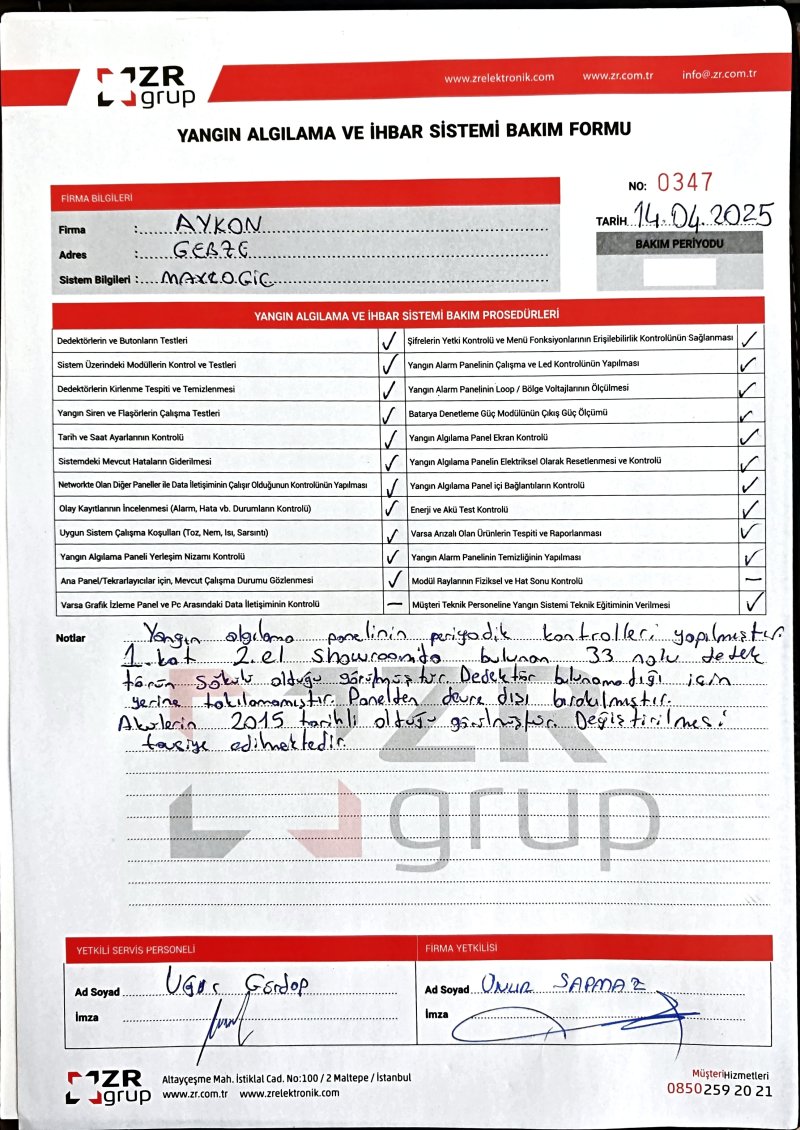 ZR grup
www.zrelektronik.com www.zr.com.tr info@.zr.com.tr
YANGIN ALGILAMA VE İHBAR SİSTEMİ BAKIM FORMU
NO: 0347
FİRMA BİLGİLERİ
TARİH 14.04.2025
Firma : AYKON
BAKIM PERİYODU
Adres : GEBZE
Sistem Bilgileri : MAXLOGİC
YANGIN ALGILAMA VE İHBAR SİSTEMİ BAKIM PROSEDÜRLERİ
Dedektörlerin ve Butonların Testleri ✓ Şifrelerin Yetki Kontrolü ve Menü Fonksiyonlarının Erişilebilirlik Kontrolünün Sağlanması ✓
Sistem Üzerindeki Modüllerin Kontrol ve Testleri ✓ Yangın Alarm Panelinin Çalışma ve Led Kontrolünün Yapılması ✓
Dedektörlerin Kirlenme Tespiti ve Temizlenmesi ✓ Yangın Alarm Panelinin Loop / Bölge Voltajlarının Ölçülmesi ✓
Yangın Siren ve Flaşörlerin Çalışma Testleri ✓ Batarya Denetleme Güç Modülünün Çıkış Güç Ölçümü ✓
Tarih ve Saat Ayarlarının Kontrolü ✓ Yangın Algılama Panel Ekran Kontrolü ✓
Sistemdeki Mevcut Hataların Giderilmesi ✓ Yangın Algılama Panelin Elektriksel Olarak Resetlenmesi ve Kontrolü ✓
Networkte Olan Diğer Paneller ile Data İletişiminin Çalışır Olduğunun Kontrolünün Yapılması ✓ Yangın Algılama Panel içi Bağlantıların Kontrolü ✓
Olay Kayıtlarının İncelenmesi (Alarm, Hata vb. Durumların Kontrolü) ✓ Enerji ve Akü Test Kontrolü ✓
Uygun Sistem Çalışma Koşulları (Toz, Nem, Isı, Sarsıntı) ✓ Varsa Arızalı Olan Ürünlerin Tespiti ve Raporlanması ✓
Yangın Algılama Paneli Yerleşim Nizamı Kontrolü ✓ Yangın Alarm Panelinin Temizliğinin Yapılması ✓
Ana Panel/Tekrarlayıcılar için, Mevcut Çalışma Durumu Gözlenmesi ✓ Modül Raylarının Fiziksel ve Hat Sonu Kontrolü —
Varsa Grafik İzleme Panel ve Pc Arasındaki Data İletişiminin Kontrolü — Müşteri Teknik Personeline Yangın Sistemi Teknik Eğitiminin Verilmesi ✓
Notlar Yangın algılama panelinin periyodik kontrolleri yapılmıştır.
1. kat 2. el showroomda bulunan 33 nolu dedek
törün sökülü olduğu görülmüştür. Dedektör bulunamadığı için
yerine takılamamıştır. Panelden devre dışı bırakılmıştır.
Akülerin 2015 tarihli olduğu görülmüştür. Değiştirilmesi
tavsiye edilmektedir.
ZR grup
YETKİLİ SERVİS PERSONELİ FİRMA YETKİLİSİ
Ad Soyad Uğur Ad Soyad ONUR SAPMAZ
İmza İmza
ZR grup
Altayçeşme Mah. İstiklal Cad. No:100 / 2 Maltepe / İstanbul
www.zr.com.tr www.zrelektronik.com
MüşteriHizmetleri
0850 259 20 21